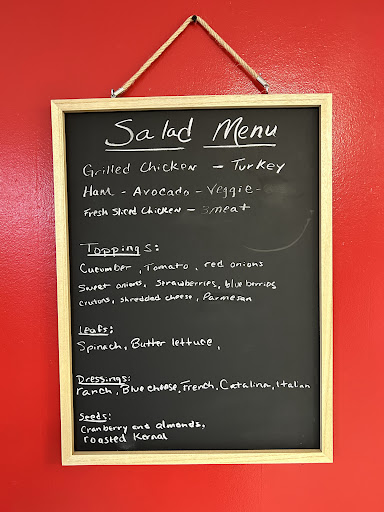 Salad Menu
Grilled Chicken - Turkey
Ham - Avocado - Veggie -
Fresh Sliced Chicken - 3meat
Toppings:
Cucumber, Tomato, red onions
Sweet onions, Strawberries, blue berries
crutons, shredded cheese, Parmesan
Leafs:
Spinach, Butter lettuce,
Dressings:
ranch, Blue cheese, French, Catalina, Italian
Seeds:
Cranberry and almonds,
roasted Kernal